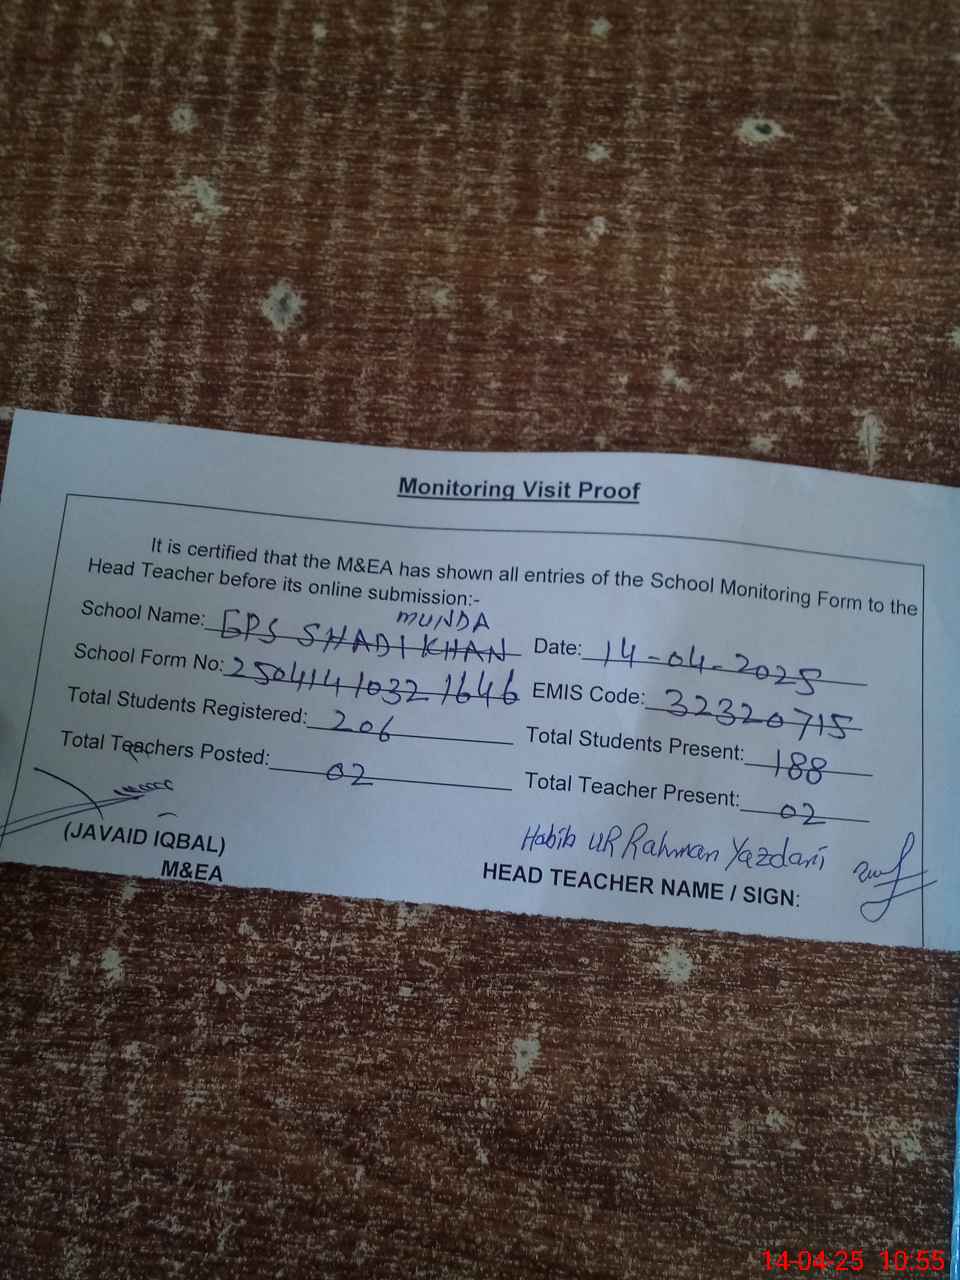 Monitoring Visit Proof
It is certified that the M&EA has shown all entries of the School Monitoring Form to the
Head Teacher before its online submission:-
School Name: GPS SHADI KHAN MUNDA Date: 14-04-2025
School Form No: 250414 1032 1646 EMIS Code: 32320715
Total Students Registered: 206 Total Students Present: 188
Total Teachers Posted: 02 Total Teacher Present: 02
(JAVAID IQBAL) Habib UR Rahman Yazdani
M&EA HEAD TEACHER NAME / SIGN:
14-04-25 10:55